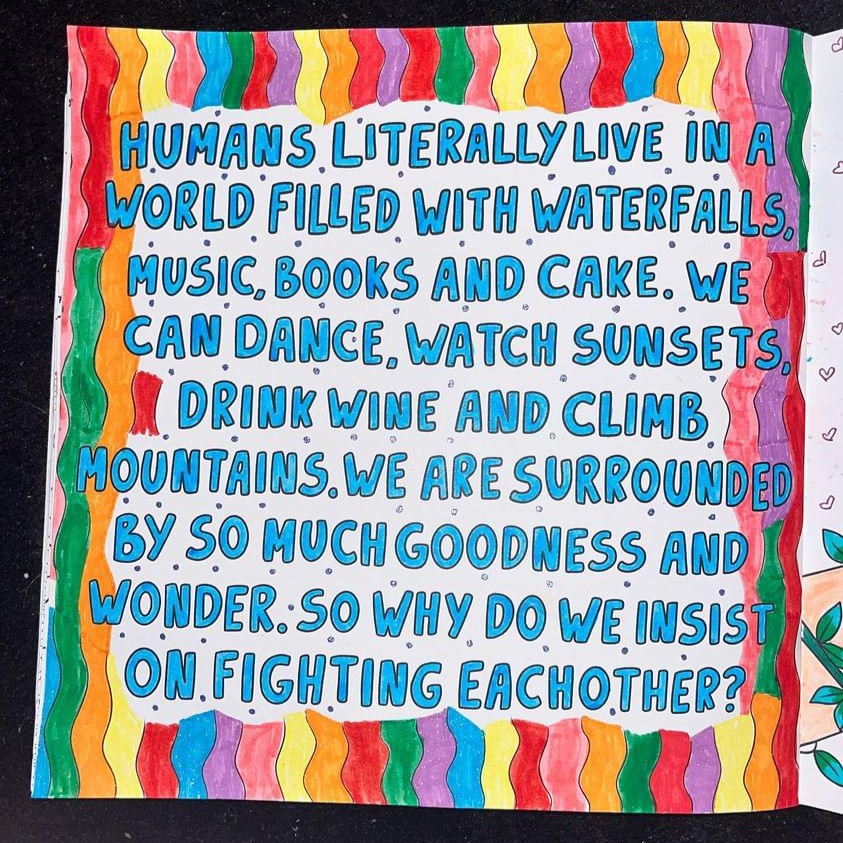 HUMANS LITERALLY LIVE IN A
WORLD FILLED WITH WATERFALLS,
MUSIC, BOOKS AND CAKE. WE
CAN DANCE, WATCH SUNSETS,
DRINK WINE AND CLIMB
MOUNTAINS. WE ARE SURROUNDED
BY SO MUCH GOODNESS AND
WONDER. SO WHY DO WE INSIST
ON FIGHTING EACHOTHER?